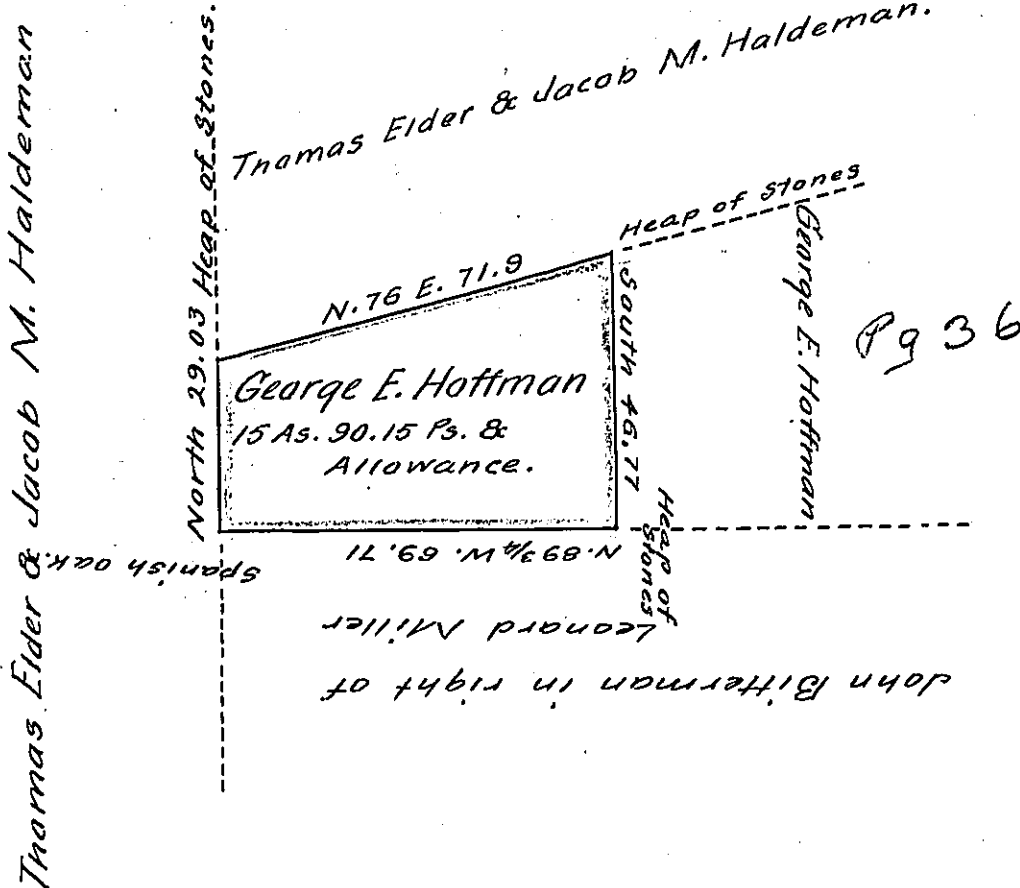 Thomas Elder & Jacob M. Haldeman
North 29.03 Heap of Stones.
Thomas Elder & Jacob M. Haldeman.
Heap of Stones
N. 76 E. 71.9
South 46.77
George E. Hoffman
Pg 36
George E. Hoffman
15 As. 90.15 Ps. &
Allowance.
Heap of
Stones
N. 89 3/4 W. 69.71
Spanish oak.
John Bitterman in right of
Leonard Miller